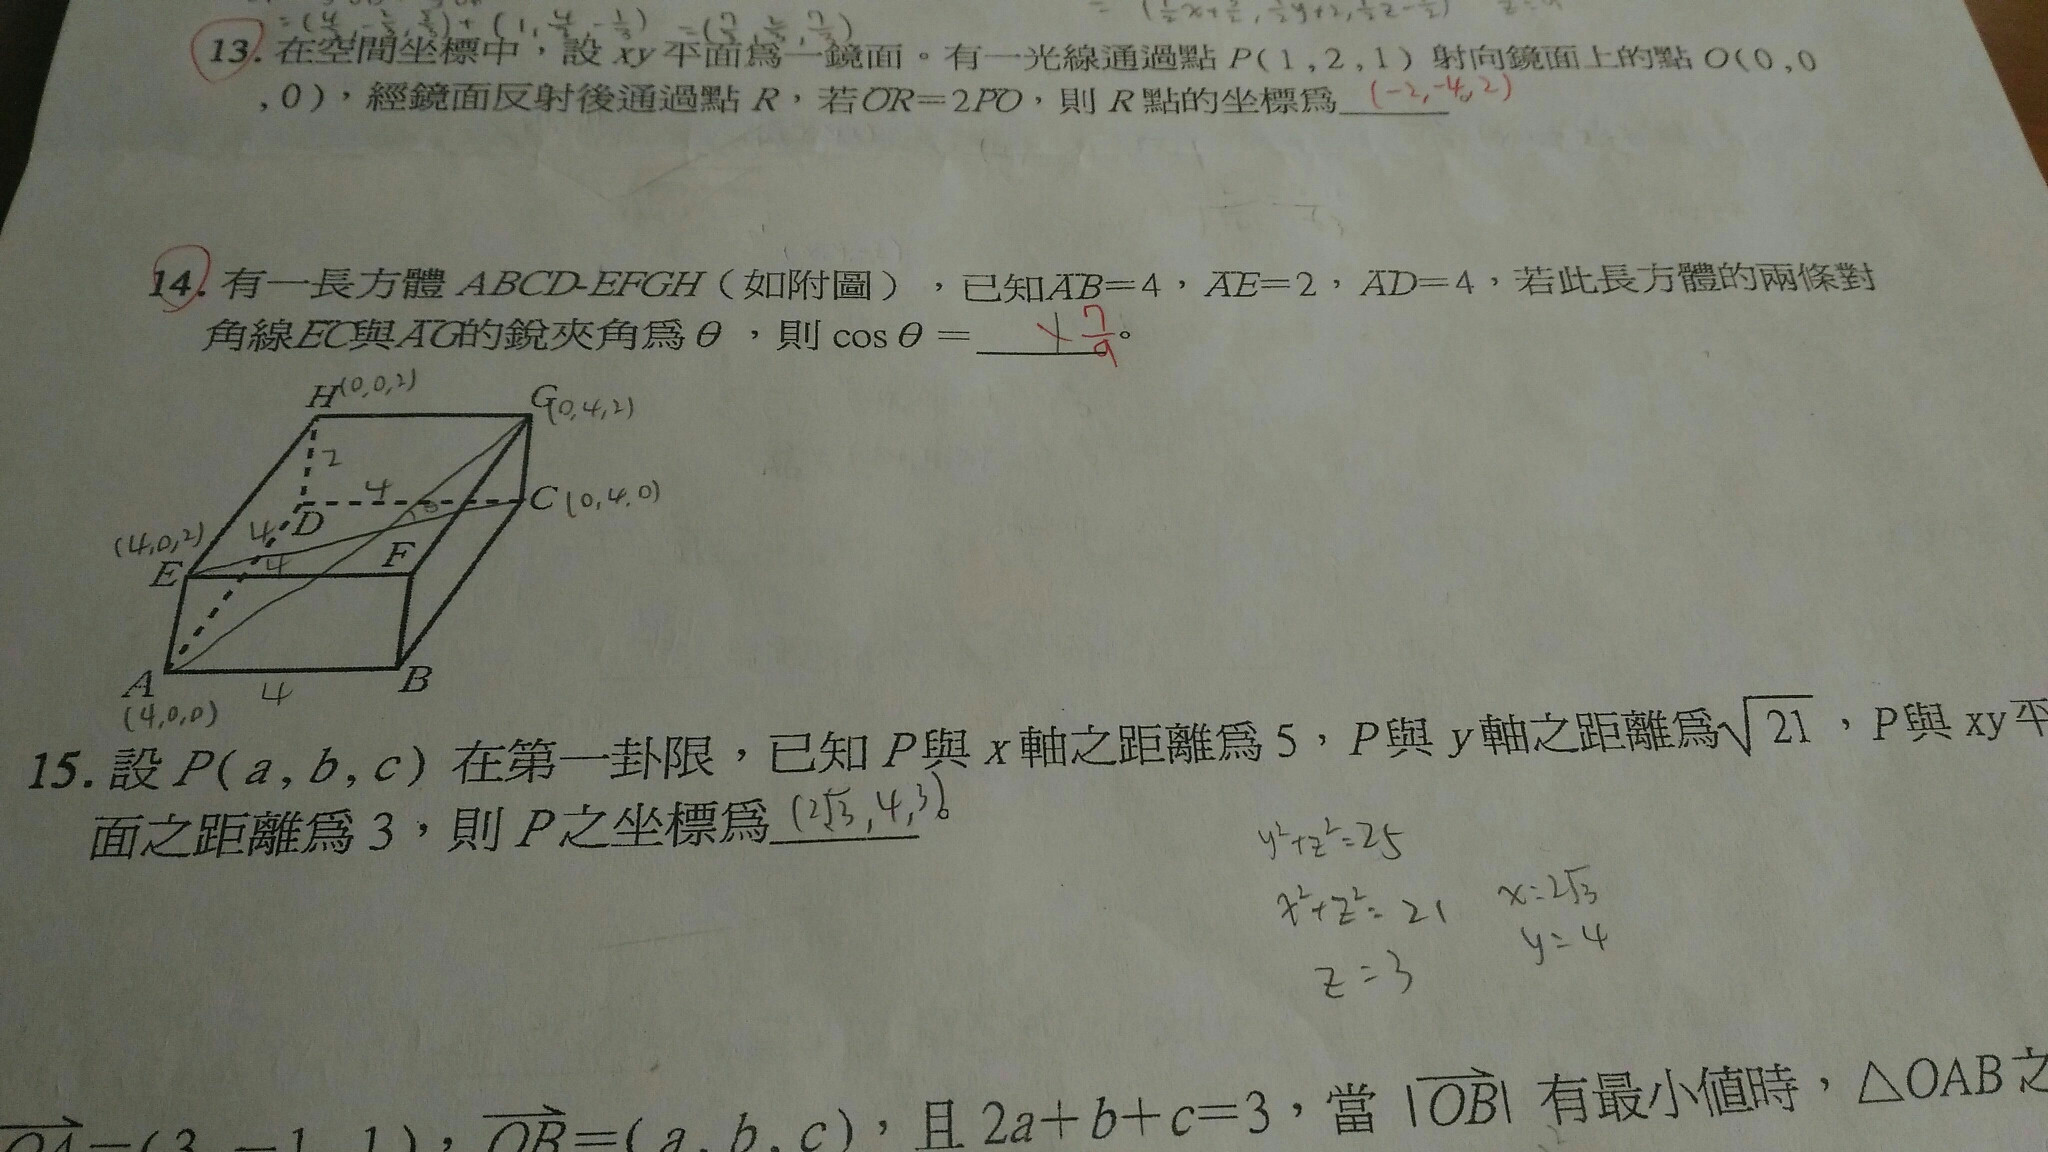 =(4/3,-2/3,2/3)+(1,4/3,-1/3) =(7/3,
13. 在空間坐標中，設 xy 平面爲一鏡面。有一光線通過點 P(1,2,1) 射向鏡面上的點 O(0,0
,0)，經鏡面反射後通過點 R，若OR=2PO，則 R 點的坐標爲 (-2,-4,2)
14. 有一長方體 ABCD-EFGH（如附圖），已知AB=4，AE=2，AD=4，若此長方體的兩條對
角線EC與AG的銳夾角爲θ，則 cosθ= 7/9。
H(0,0,2)
G(0,4,2)
2
4
C(0,4,0)
D
4
(4,0,2)
E
4
F
A
B
4
(4,0,0)
15. 設 P(a,b,c) 在第一卦限，已知 P與 x 軸之距離爲 5，P與 y 軸之距離爲√21，P與 xy 平
面之距離爲 3，則 P之坐標爲 (2√3,4,3)。
y²+z²=25
x²+z²=21
x=2√3
y=4
z=3
OA=(3,-1,1)，OB=(a,b,c)，且 2a+b+c=3，當 |OB| 有最小值時，△OAB 之